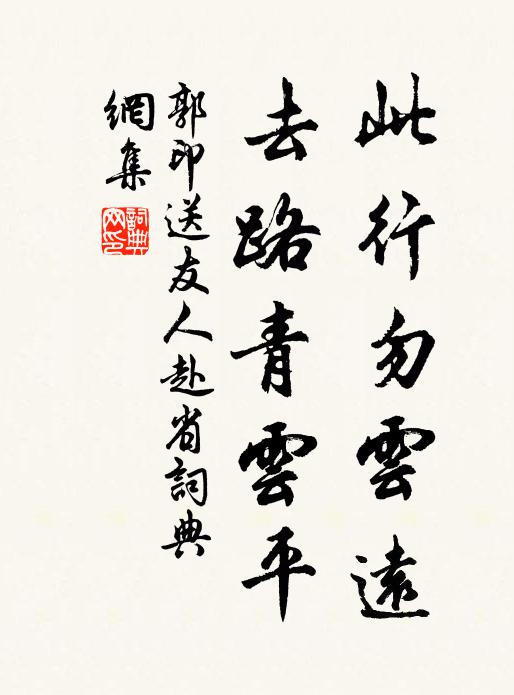 此行勿雲遠
去路青雲平
郭印送友人赴省詞典
網集
詞典網印